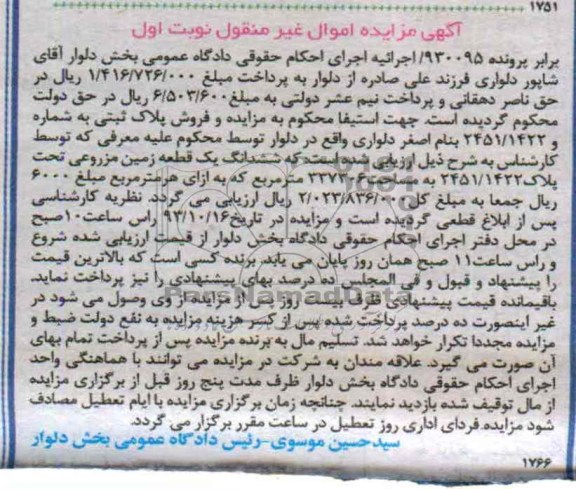 ۱۷۵۱
آگهی مزایده اموال غیر منقول نوبت اول
برابر پرونده ۹۳۰۰۹۵/ اجرائیه اجرای احکام حقوقی دادگاه عمومی بخش دلوار آقای
شاپور دلواری فرزند علی صادره از دلوار به پرداخت مبلغ ۱/۴۱۶/۷۲۶/۰۰۰ ریال در
حق ناصر دهقانی و پرداخت نیم عشر دولتی به مبلغ ۶/۵۰۳/۶۰۰ ریال در حق دولت
محکوم گردیده است. جهت استیفا محکوم به مزایده و فروش پلاک ثبتی به شماره
و ۲۴۵۱/۱۴۲۲ بنام اصغر دلواری واقع در دلوار توسط محکوم علیه معرفی که توسط
کارشناس به شرح ذیل ارزیابی شده است که ششدانگ یک قطعه زمین مزروعی تحت
پلاک ۲۴۵۱/۱۴۲۲ به مساحت ۳۳۷۳۰۶ مترمربع که به ازای هر مترمربع مبلغ ۶۰۰۰
ریال جمعا به مبلغ کل ۲/۰۲۳/۸۳۶/۰۰۰ ریال ارزیابی می گردد. نظریه کارشناسی
پس از ابلاغ قطعی گردیده است و مزایده در تاریخ ۹۳/۱۰/۱۶ راس ساعت ۱۰ صبح
در محل دفتر اجرای احکام حقوقی دادگاه بخش دلوار از قیمت ارزیابی شده شروع
و راس ساعت ۱۱ صبح همان روز پایان می یابد. برنده کسی است که بالاترین قیمت
را پیشنهاد و قبول و فی المجلس ده درصد بهای پیشنهادی را نیز پرداخت نماید.
باقیمانده قیمت پیشنهادی ظرف بیست روز پس از مزایده از وی وصول می شود در
غیر اینصورت ده درصد پرداخت شده پس از کسر هزینه مزایده به نفع دولت ضبط و
مزایده مجددا تکرار خواهد شد. تسلیم مال به برنده مزایده پس از پرداخت تمام بهای
آن صورت می گیرد. علاقه مندان به شرکت در مزایده می توانند با هماهنگی واحد
اجرای احکام حقوقی دادگاه بخش دلوار ظرف مدت پنج روز قبل از برگزاری مزایده
از مال توقیف شده بازدید نمایند. چنانچه زمان برگزاری مزایده با ایام تعطیل مصادف
شود مزایده فردای اداری روز تعطیل در ساعت مقرر برگزار می گردد.
سیدحسین موسوی-رئیس دادگاه عمومی بخش دلوار
۱۷۶۶